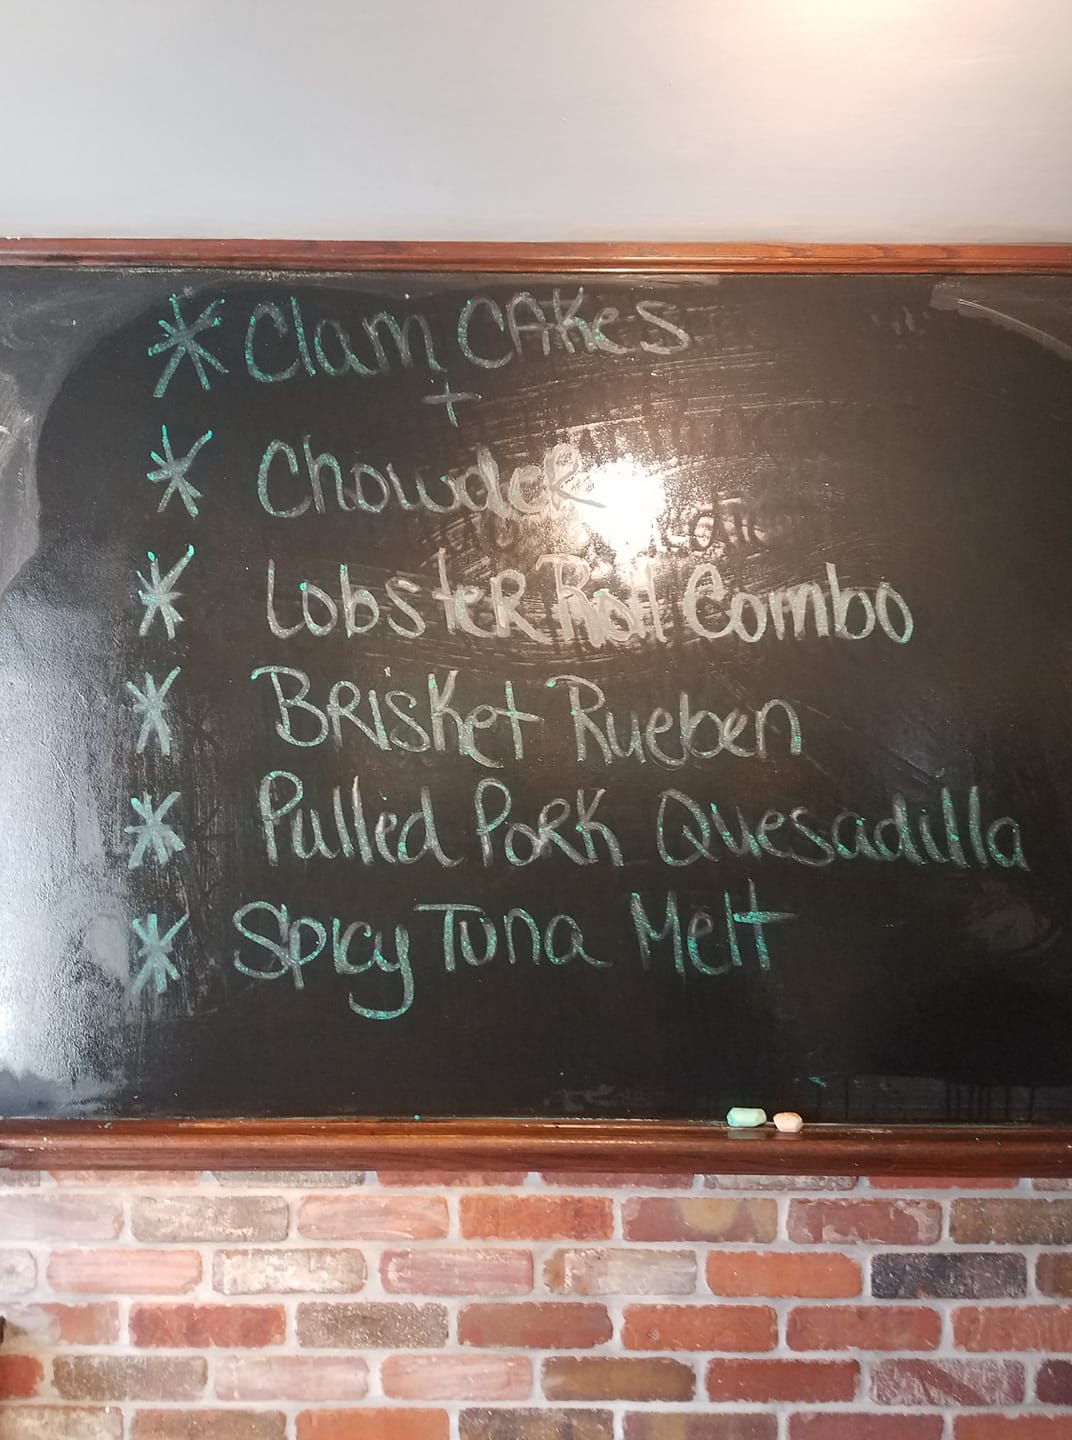 * Clam CAKes
+
* ChowdeR
* LobsteR Roll Combo
* BRisket Rueben
* Pulled PoRK Quesadilla
* Spicy Tuna Melt